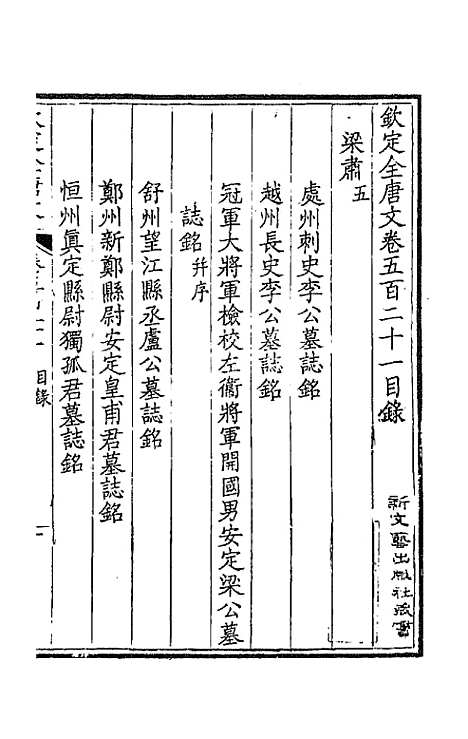 欽定全唐文卷五百二十一目錄
新文藝出版社藏書
梁肅五
處州刺史李公墓誌銘
越州長史李公墓誌銘
冠軍大將軍檢校左衞將軍開國男安定梁公墓
誌銘并序
舒州望江縣丞盧公墓誌銘
鄭州新鄭縣尉安定皇甫君墓誌銘
恒州眞定縣尉獨孤君墓誌銘
目錄
一